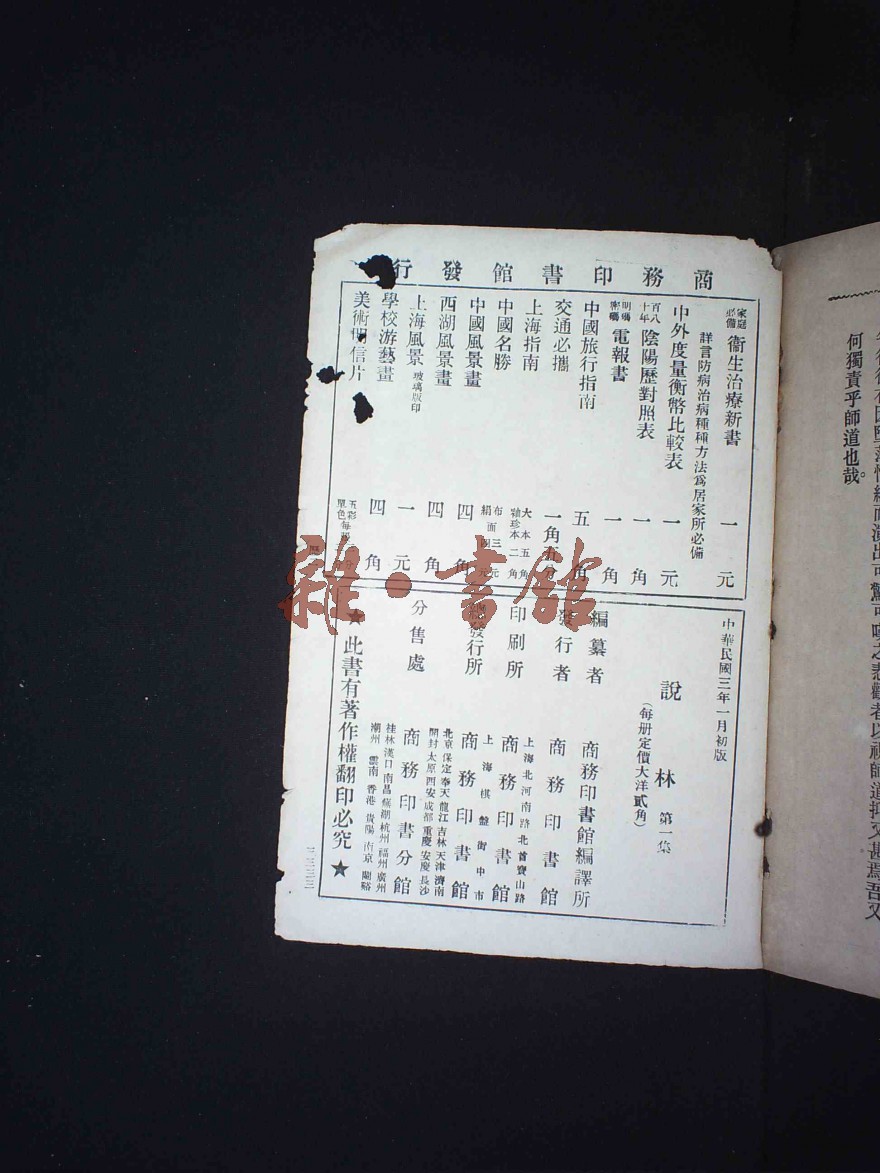 商務印書館發行
家庭必備 衞生治療新書 一元
詳言防病治病種種方法爲居家所必備
中外度量衡幣比較表 一元
百八十年 陰陽歷對照表 一角
明碼密碼 電報書 一角
中國旅行指南 五角
交通必攜 一角五分
上海指南 大本五角 袖珍本二角
中國名勝 布面三元 絹面四元
中國風景畫 四角
西湖風景畫 四角
上海風景 玻璃版印 一元
學校游藝畫 四角
美術明信片 五彩每 單色每
中華民國三年一月初版
說林 第一集
(每册定價大洋貳角)
編纂者 商務印書館編譯所
發行者 商務印書館
上海北河南路北首寶山路
印刷所 商務印書館
上海棋盤街中市
總發行所 商務印書館
北京保定奉天龍江吉林天津濟南
開封太原西安成都重慶安慶長沙
分售處 商務印書分館
桂林漢口南昌蕪湖杭州福州廣州
潮州 雲南 香港 貴陽 南京 蘭谿
★此書有著作權翻印必究★
何獨責乎師道也哉。
雜·書館